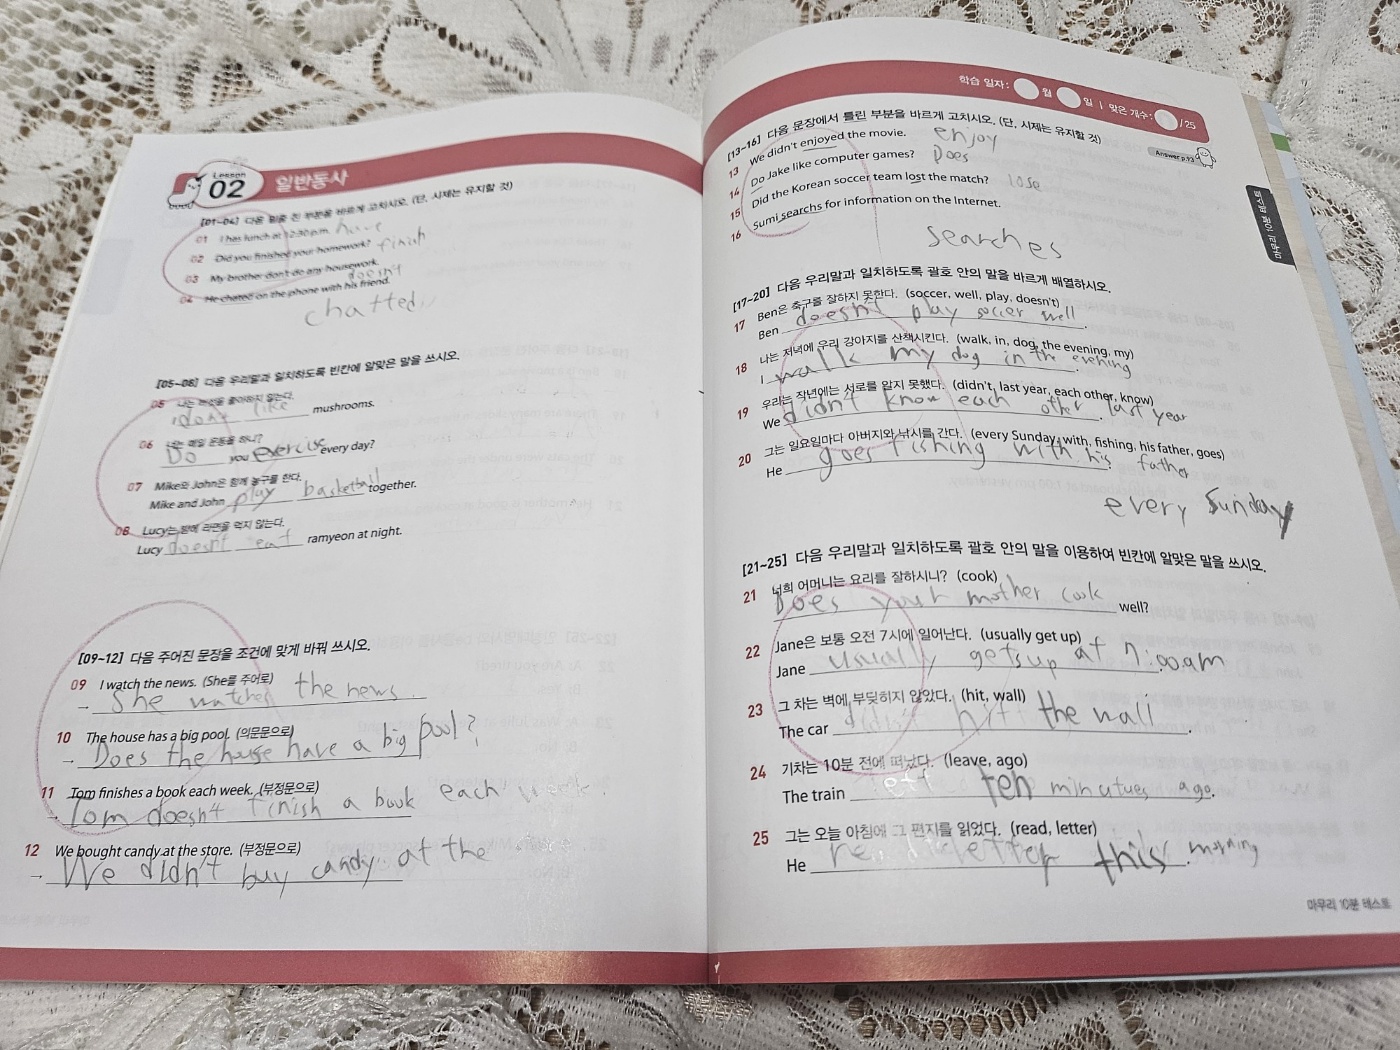 Lesson
02
일반동사
[01~04] 다음 밑줄 친 부분을 바르게 고치시오. (단, 시제는 유지할 것)
01 I has lunch at 12:30 p.m. have
02 Did you finished your homework? finish
03 My brother don't do any housework. doesn't
04 He chated on the phone with his friend.
chatted
[05~08] 다음 우리말과 일치하도록 빈칸에 알맞은 말을 쓰시오.
05 나는 버섯을 좋아하지 않는다.
I don't like mushrooms.
06 너는 매일 운동을 하니?
Do you exercise every day?
07 Mike와 John은 함께 농구를 한다.
Mike and John play basketball together.
08 Lucy는 밤에 라면을 먹지 않는다.
Lucy doesn't eat ramyeon at night.
[09~12] 다음 주어진 문장을 조건에 맞게 바꿔 쓰시오.
09 I watch the news. (She를 주어로)
→ She watches the news.
10 The house has a big pool. (의문문으로)
→ Does the house have a big pool?
11 Tom finishes a book each week. (부정문으로)
→ Tom doesn't finish a book each week.
12 We bought candy at the store. (부정문으로)
→ We didn't buy candy at the
학습 일자: 월 일 | 맞은 개수: /25
[13~16] 다음 문장에서 틀린 부분을 바르게 고치시오. (단, 시제는 유지할 것)
Answer p.13
13 We didn't enjoyed the movie. enjoy
14 Do Jake like computer games? Does
15 Did the Korean soccer team lost the match? lose
16 Sumi searchs for information on the Internet.
searches
[17~20] 다음 우리말과 일치하도록 괄호 안의 말을 바르게 배열하시오.
17 Ben은 축구를 잘하지 못한다. (soccer, well, play, doesn't)
Ben doesn't play soccer well.
18 나는 저녁에 우리 강아지를 산책시킨다. (walk, in, dog, the evening, my)
I walk my dog in the evening.
19 우리는 작년에는 서로를 알지 못했다. (didn't, last year, each other, know)
We didn't know each other last year.
20 그는 일요일마다 아버지와 낚시를 간다. (every Sunday, with, fishing, his father, goes)
He goes fishing with his father
every Sunday
[21~25] 다음 우리말과 일치하도록 괄호 안의 말을 이용하여 빈칸에 알맞은 말을 쓰시오.
21 너희 어머니는 요리를 잘하시니? (cook)
Does your mother cook well?
22 Jane은 보통 오전 7시에 일어난다. (usually get up)
Jane usually gets up at 7:00am
23 그 차는 벽에 부딪히지 않았다. (hit, wall)
The car didn't hit the wall.
24 기차는 10분 전에 떠났다. (leave, ago)
The train left ten minutues ago.
25 그는 오늘 아침에 그 편지를 읽었다. (read, letter)
He letter this morning.
마무리 10분 테스트